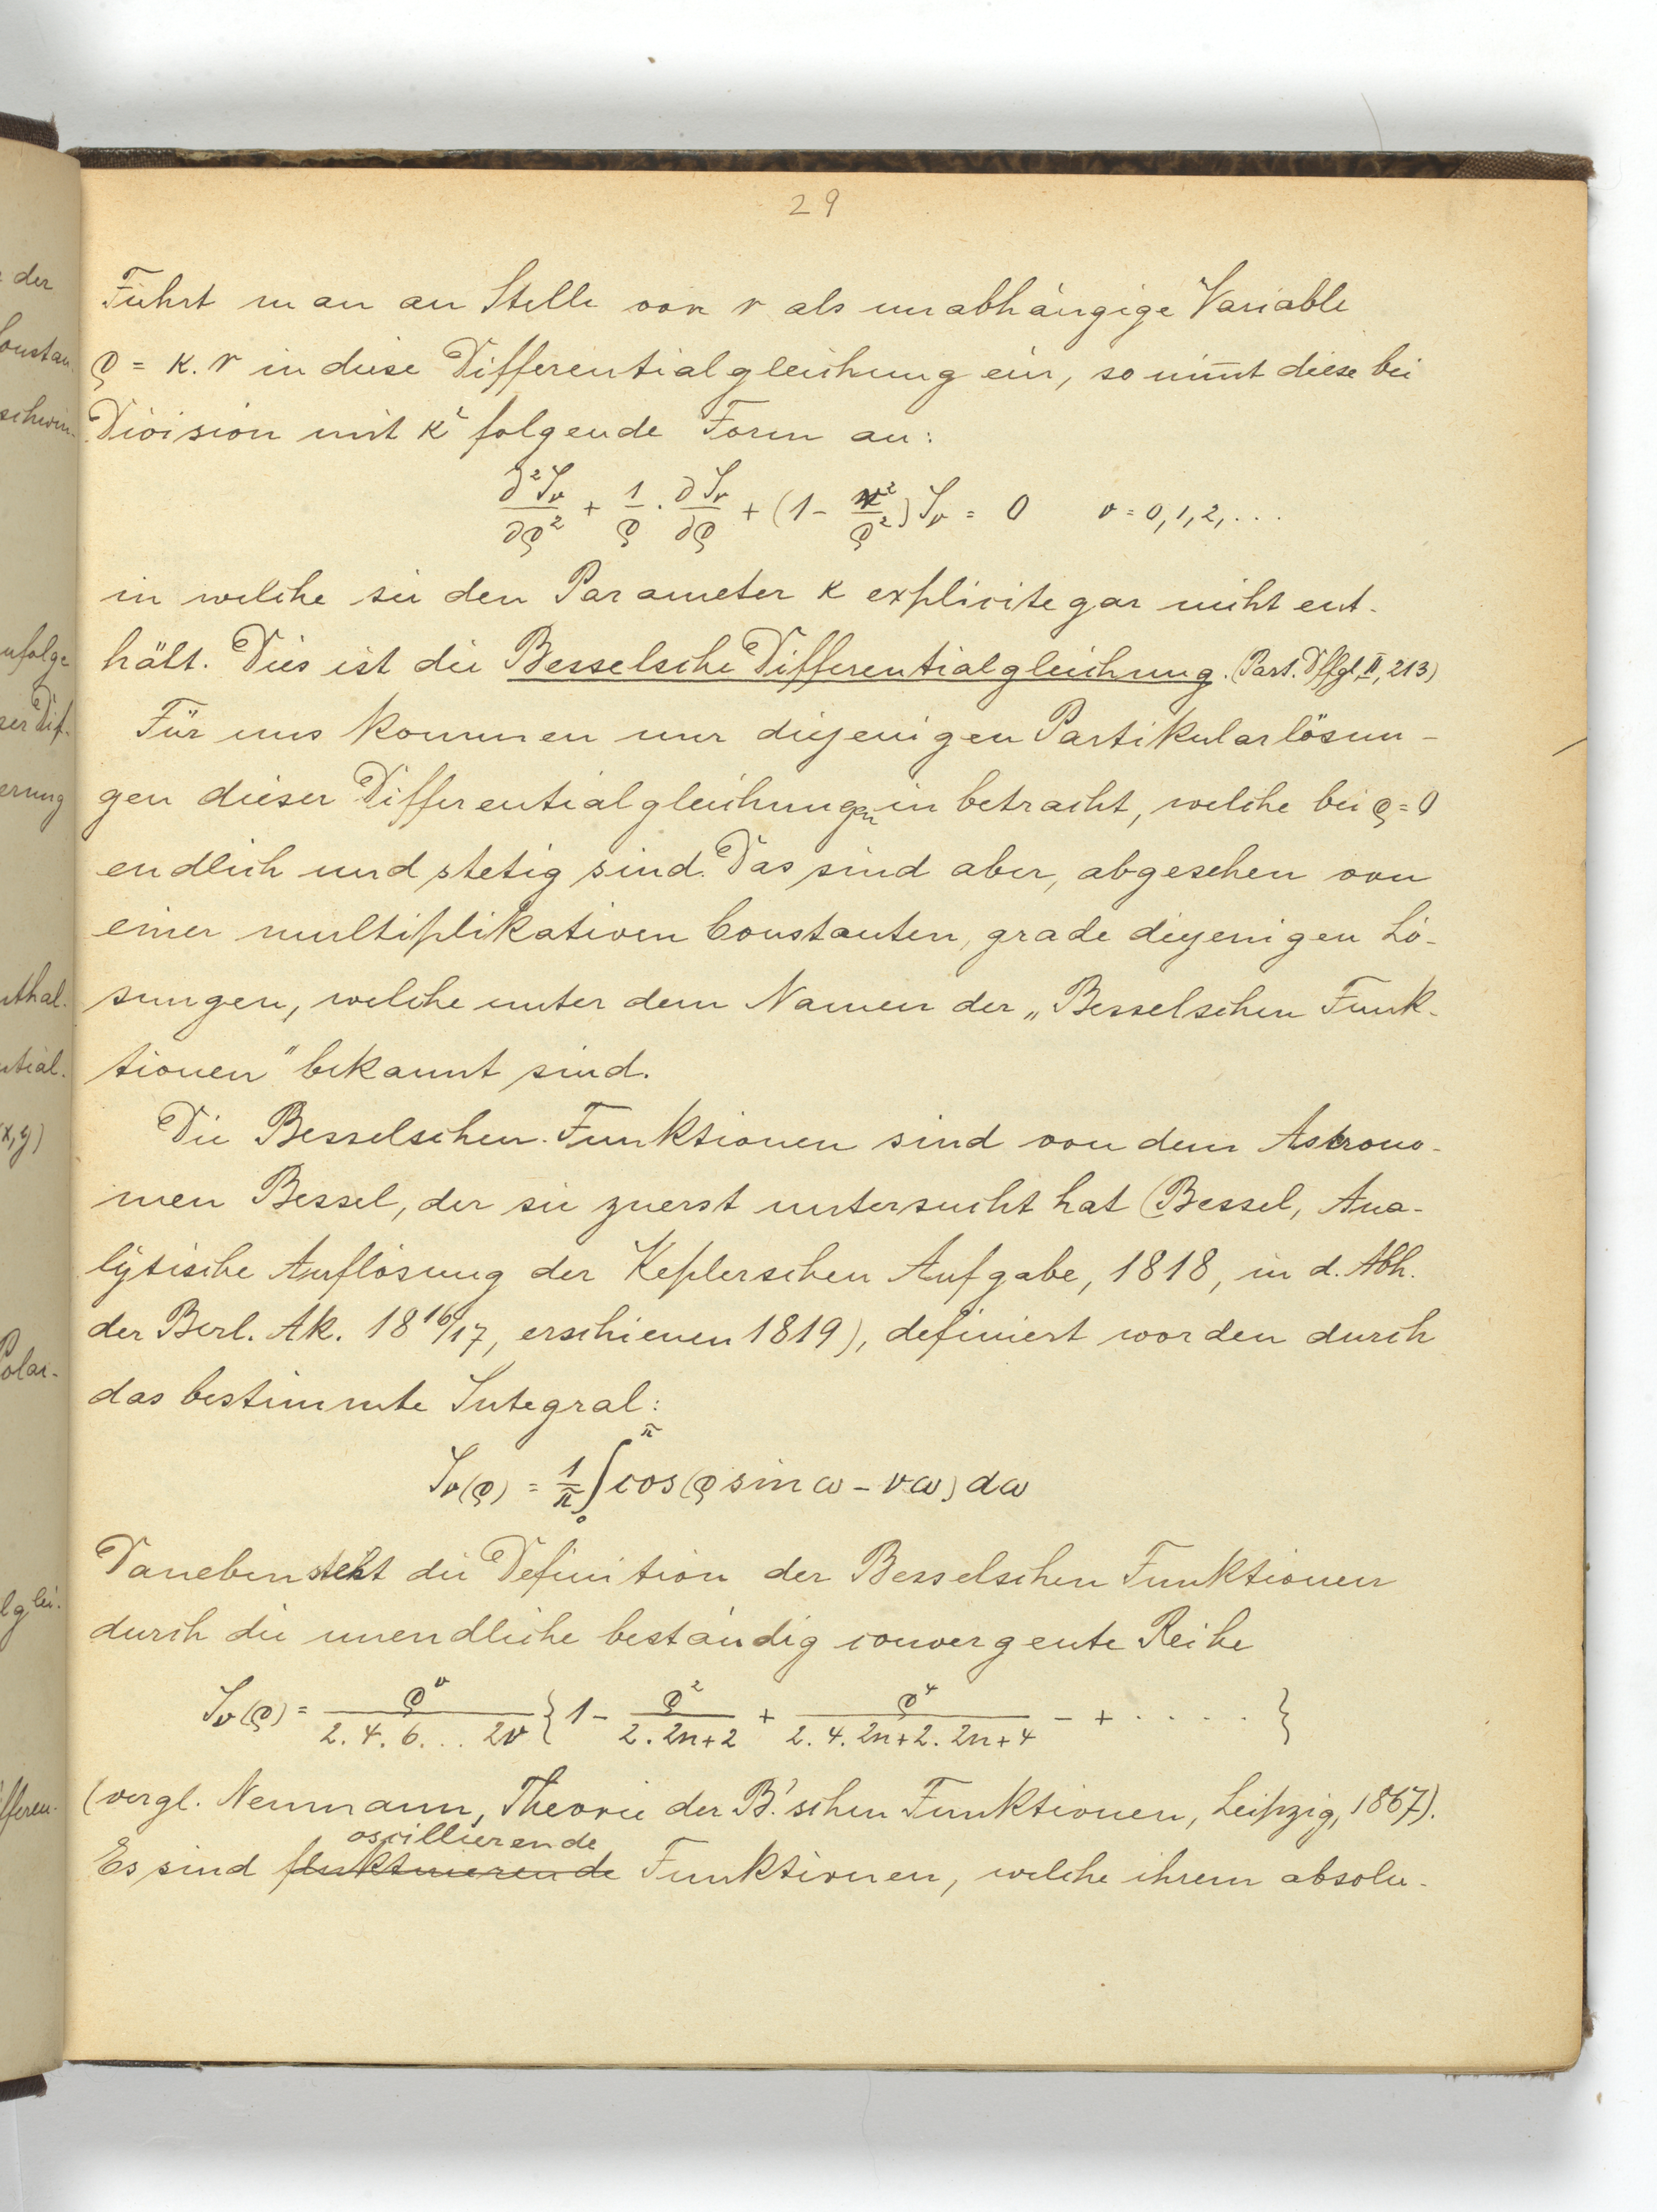 29
Führt man an Stelle von r als unabhängige Variable
ρ = κ.r in diese Differentialgleichung ein, so nim̅t diese bei
Division mit κ² folgende Form an:
∂²J_ν/∂ρ² + 1/ρ · ∂J_ν/∂ρ + (1 - ν²/ρ²) J_ν = 0 ν = 0,1,2,...
in welche sie den Parameter κ explicite gar nicht ent-
hält. Dies ist die Besselsche Differentialgleichung. (Part. Dffgl, II, 213)
Für uns kommen nur diejenigen Partikularlösun-
gen dieser Differentialgleichungen in betracht, welche bei ρ = 0
endlich und stetig sind. Das sind aber, abgesehen von
einer multiplikativen Constanten, grade diejenigen Lö-
sungen, welche unter dem Namen der „Besselschen Funk-
tionen" bekannt sind.
Die Besselschen Funktionen sind von dem Astrono-
men Bessel, der sie zuerst untersucht hat (Bessel, Ana-
lytische Auflösung der Keplerschen Aufgabe, 1818, in d. Abh.
der Berl. Ak. 18 16/17, erschienen 1819), definiert worden durch
das bestimmte Integral:
J_ν(ρ) = 1/π ∫₀^π cos(ρ sin ω - νω) dω
Daneben steht die Definition der Besselschen Funktionen
durch die unendliche beständig convergente Reihe
J_ν(ρ) = ρ^ν/(2.4.6...2ν) { 1 - ρ²/(2.2n+2) + ρ⁴/(2.4.2n+2.2n+4) - + ..... }
(vergl. Neumann, Theorie der B.'schen Funktionen, Leipzig, 1867).
oscillierende
Es sind fluktuierende Funktionen, welche ihrem absolu-
der
Constan-
schwin-
zufolge
ser Dif-
erung
nthal-
ntial-
(x,y)
Polar-
lglei-
ifferen-